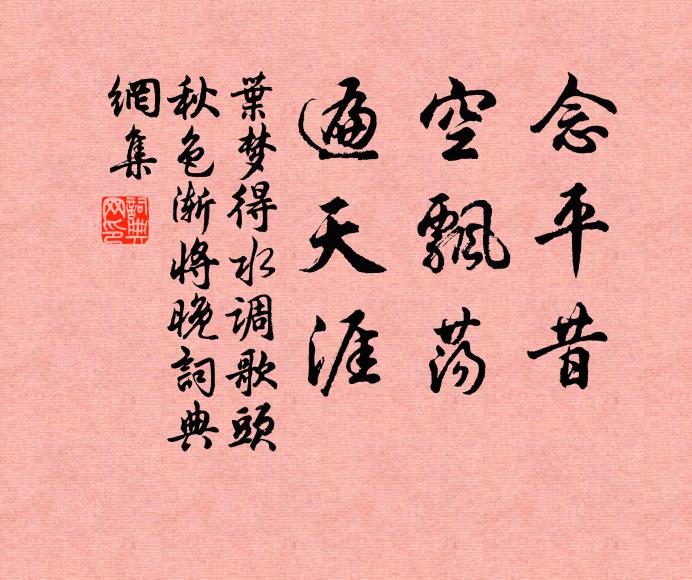 念平昔
空飄蕩
遍天涯
葉梦得水调歌頭
秋色渐将晚詞典
網集
詞典網印